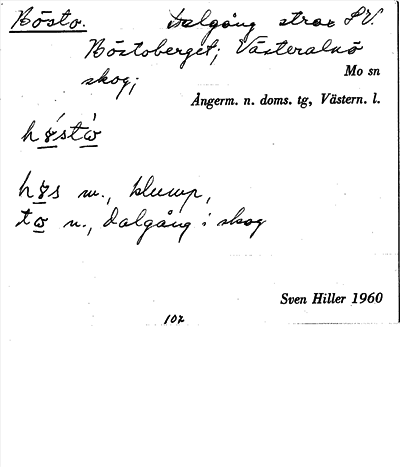 Bösto. Dalgång strax S.V.
Böstoberget; Västeralnö
skog;
Mo sn
Ångerm. n. doms. tg, Västern. l.
m., klump,
n., dalgång i skog
Sven Hiller 1960
102